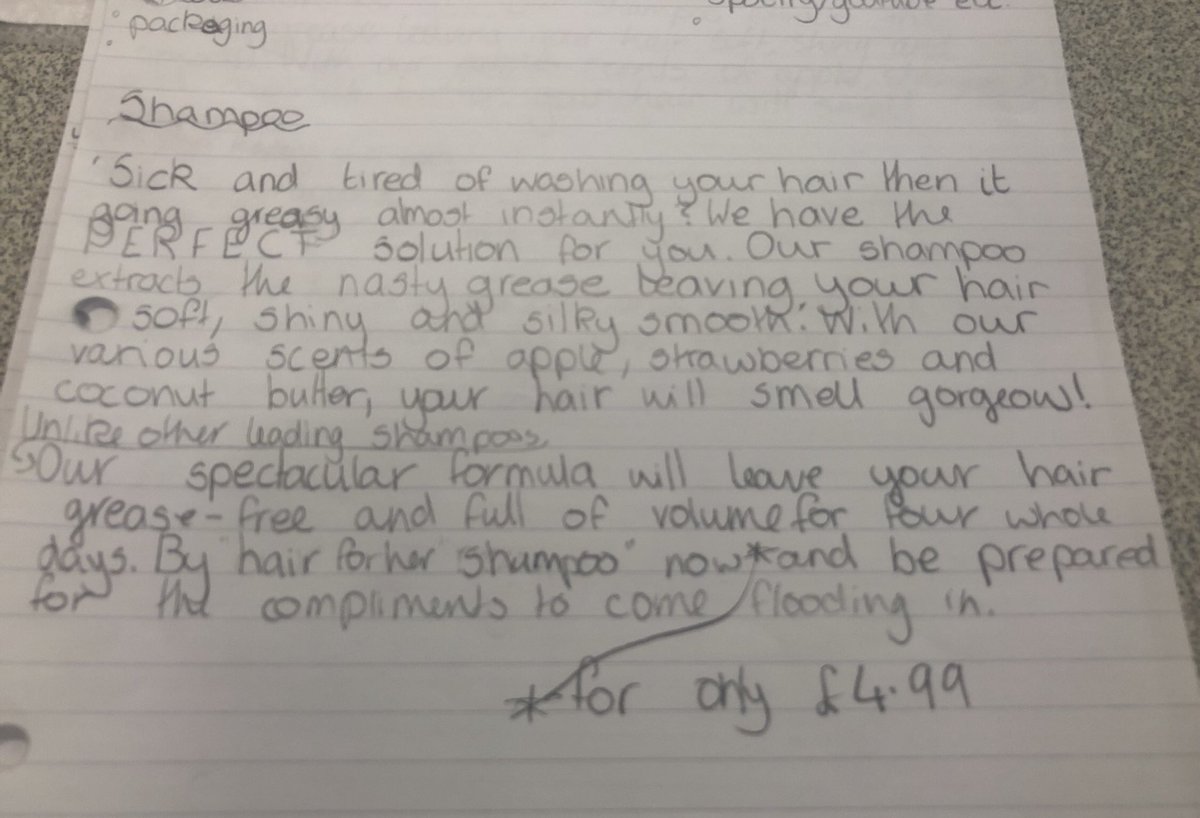 packaging
Shampoo
'Sick and tired of washing your hair then it
going greasy almost instantly? We have the
PERFECT solution for you. Our shampoo
extracts the nasty grease leaving your hair
soft, shiny and silky smooth. With our
various scents of apple, strawberries and
coconut butter, your hair will smell gorgeous!
Unlike other leading shampoos
Our spectacular formula will leave your hair
grease-free and full of volume for four whole
days. By 'hair for her shampoo' now*and be prepared
for the compliments to come flooding in.
*for only £4.99